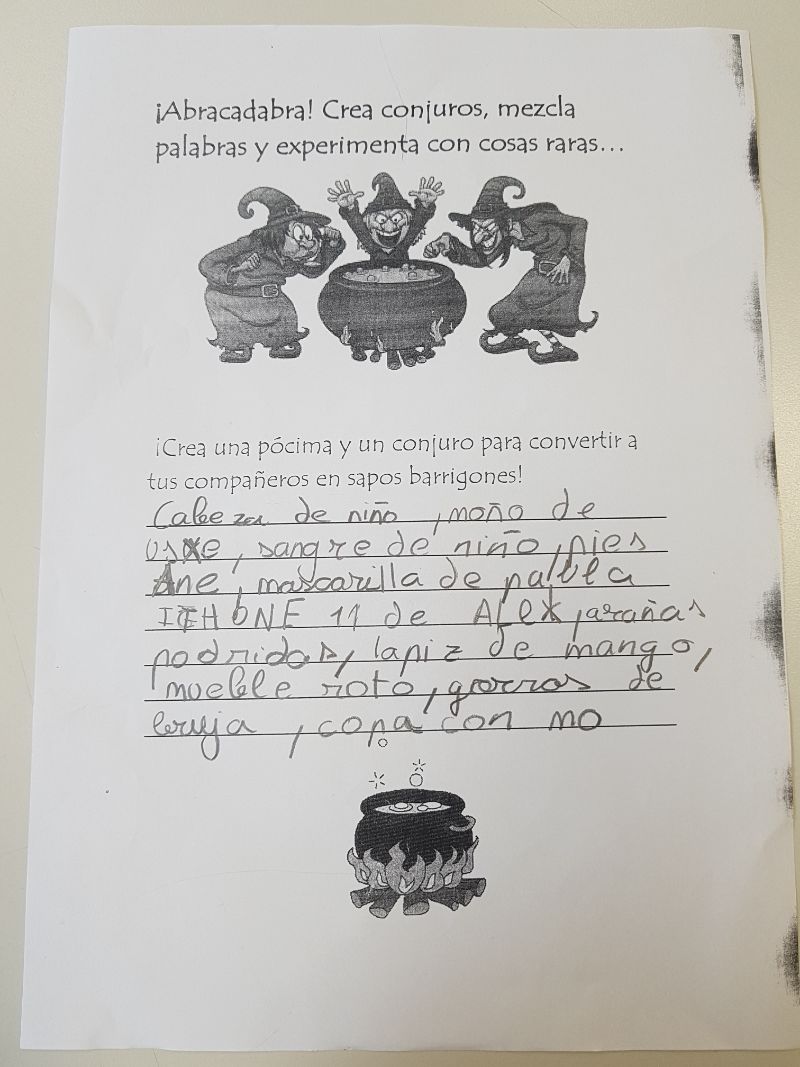 ¡Abracadabra! Crea conjuros, mezcla
palabras y experimenta con cosas raras...
¡Crea una pócima y un conjuro para convertir a
tus compañeros en sapos barrigones!
Cabeza de niño, moño de
, sangre de niño, pies
Ane, mascarilla de
11 de ALEX, arañas
podridas, lapiz de mango,
mueble roto, gorros de
bruja, copa con mo